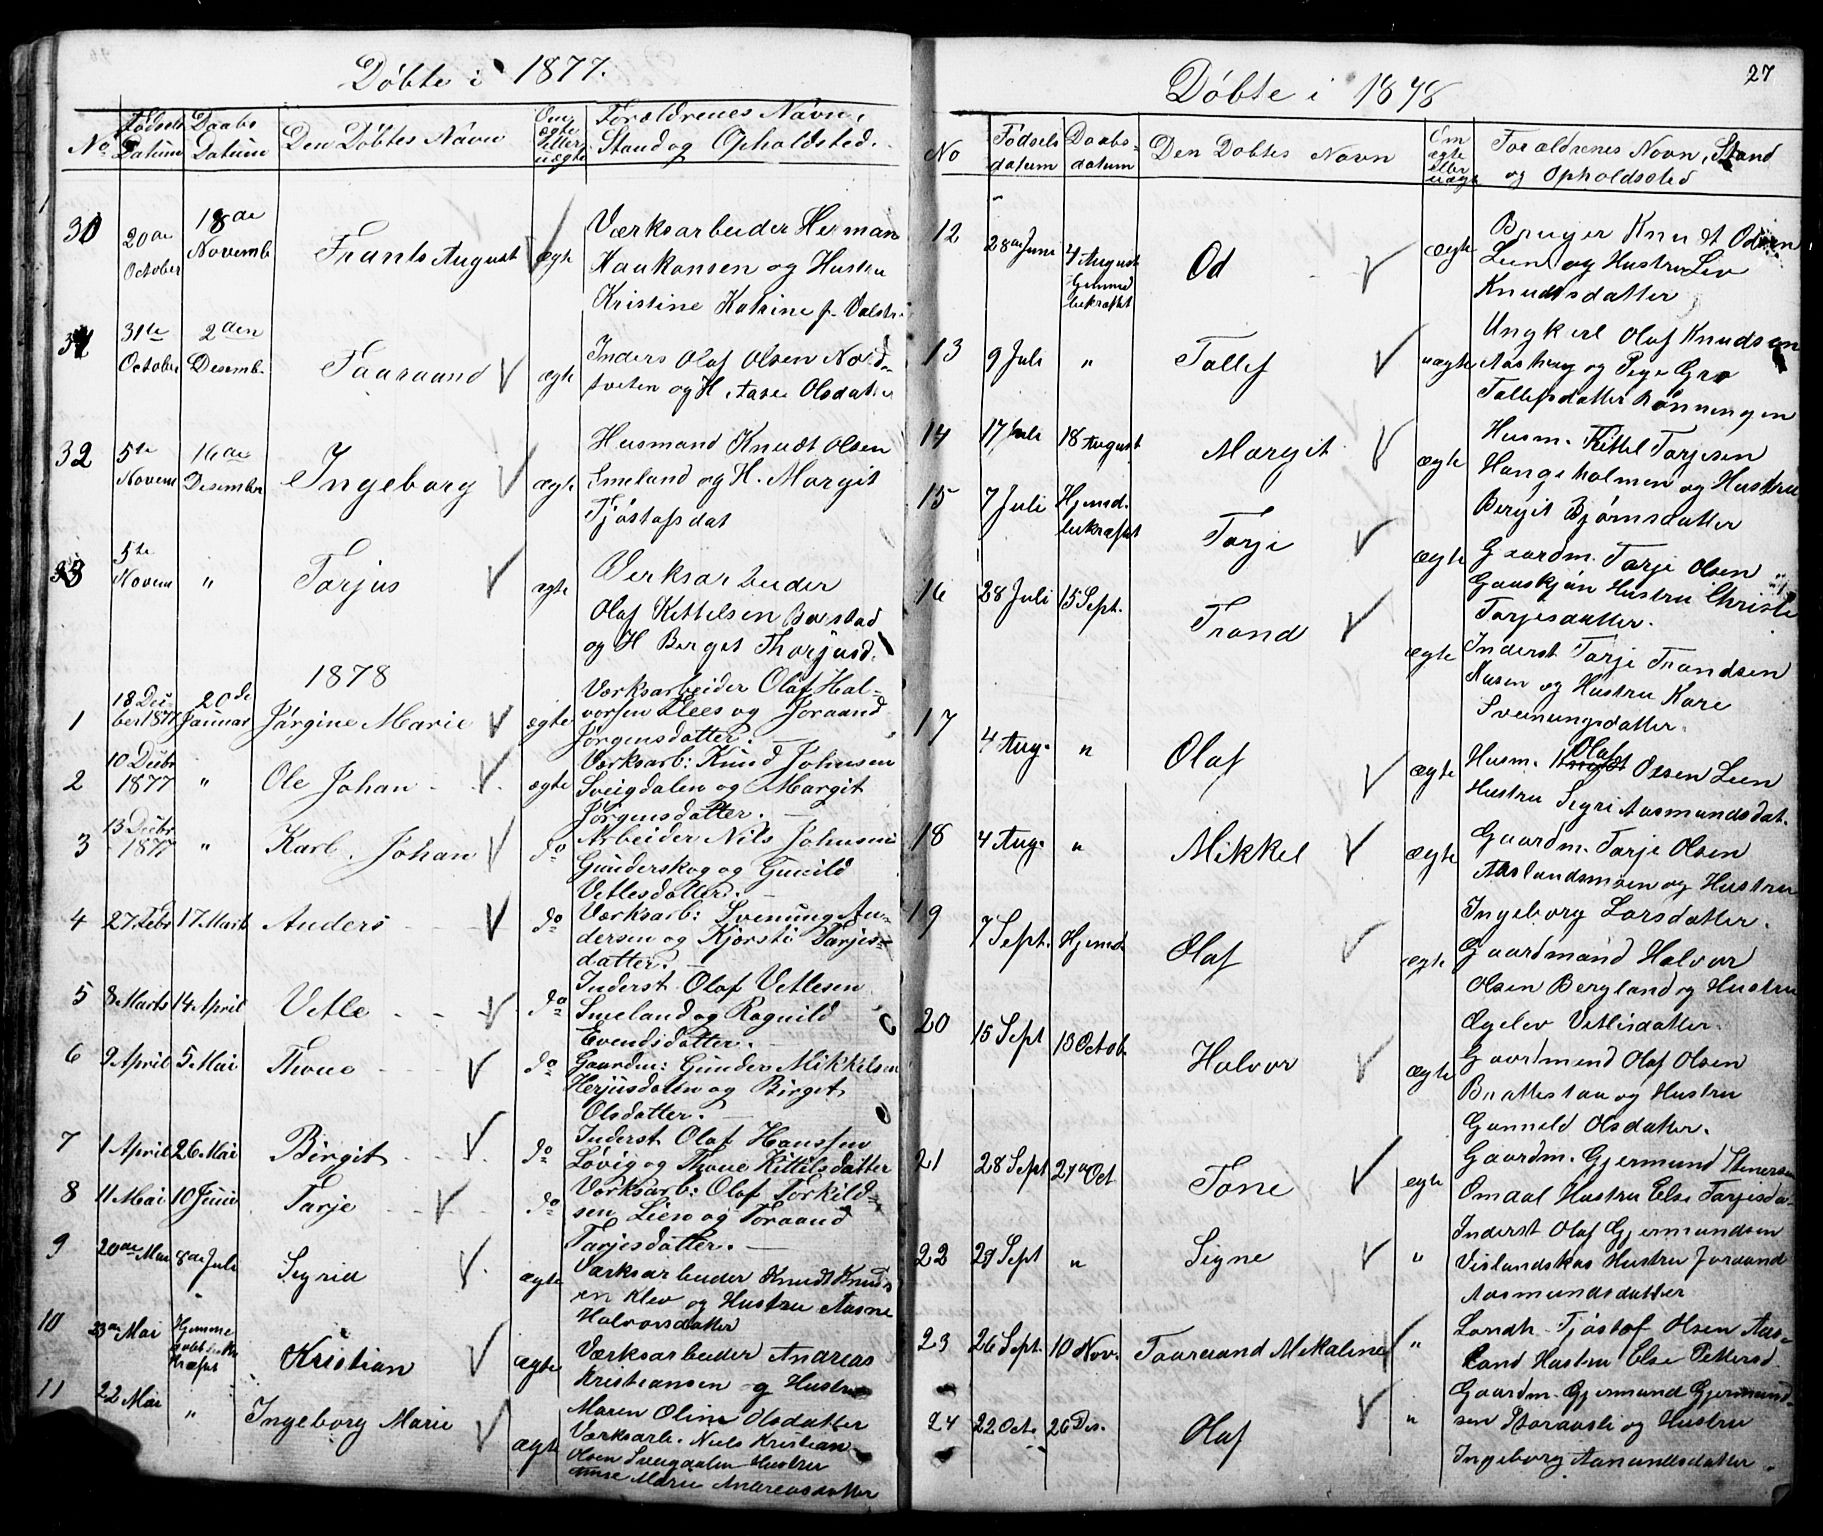 Döbte i 1877.
No
Födsels Datum
Daabs Datum
Den Döbtes Navn
Om ægte eller uægte
Forældrenes Navn, Stand og Opholdsted.
30
20de October
18de Novemb
Frants August
ægte
Værksarbeider Herman
Haakonsen og Hustru
Kristine Katrine f.
31
31te October
2den Desemb.
Taaraand
ægte
Inders Olaf Olsen Nord-
tveten og H. Aase Olsdat
32
5te Novem
16de Desember
Ingeborg
ægte
Husmand Knudt Olsen
Smeland og H. Margit
Tjöstafsdat
33
5te Novem
"
Tarjus
ægte
Verksarbeider
Olaf Kittelsen Borstad
og H Berget Thorjusd.
1878
1
18 Decber 1877
20de Januar
Jörgine Marie
ægte
Værksarbeider Olaf Hal-
vorsen Klees og Joraand
Jörgensdatter.
2
10 Decbr 1877
"
Ole Johan
ægte
Værksarb: Knud Johnsen
Sveigdalen og Margit
Jörgensdatter.
3
13 Decbr 1877
"
Karl Johan
do
Arbeider Nils Johnsen
Gunderskog og Gunild
Vetlesdatter.
4
27 Febr
17 Marts
Anders
do
Værksarb: Svenung An-
dersen og Kjersti Tarjes-
datter.
5
8 Marts
14 April
Vetle
do
Inderst Olaf Vetlesen
Smeland og Ragnild
Evendsdatter.
6
2 April
5 Mai
Thone
do
Gaardm: Gunder Mikkelsen
Herjusdalen og Birget
Olsdatter.
7
1 April
26 Mai
Birgit
do
Inderst Olaf Hanssen
Lövig og Thone Kittilsdatter
8
11 Mai
10 Juni
Tarje
do
Værksarb: Olaf Torkild-
sen Lien og Toraand
Tarjesdatter.
9
20de Mai
8de Juli
Sigrid
ægte
Værksarbeider Knudt Knuds
en Klev og Hustru Aasne
Halvorsdatter
10
23de Mai
Hjemme
Kristian
ægte
Værksarbeider Andreas
Kristiansen og Hustru
Maren Oline Olsdatter
11
22 Mai
"
Ingeborg Marie
ægte
Værksarb. Niels Kristian
Olsen Sveigdalen Hustru
Marie Andreasdatter
27
Döbte i 1878
No
Födsels datum
Daabs- datum
Den Döbtes Navn
Om ægte eller uægte
Forældrenes Navn, Stand
og Opholdsted
12
28de Juni
4 August Hjemmebekræftet
Od
ægte
Bruger Knudt Odsen
Lien og Hustru Liv
Knudtsdatter
13
9 Juli
"
Tallef
uægte
Ungkerl Olaf Knudsen
Aasheug og Pige Gro
Tallefsdatter Rönningen
14
17 Juli
18 August
Margit
ægte
Husm. Kittel Tarjesen
Haugeholmen og Hustru
Bergit Björnsdatter
15
7 Juli
Hjemd. bekræftet
Tarje
ægte
Gaardm. Tarje Olsen
Gauskjön Hustru Christi
Tarjesdatter.
16
28 Juli
15 Sept.
Trond
ægte
Inderst Tarje Trondsen
Musen og Hustru Kari
Sveinungsdatter.
17
4 Aug.
"
Olaf
ægte
Husm. Olaf Olsen Lien
Hustru Sigri Aasmundsdat.
18
4 Aug.
"
Mikkel
ægte
Gaardm. Tarje Olsen
Aaslandsmoen og Hustru
Ingeborg Larsdatter.
19
7 Sept.
Hjemd.
Olaf
ægte
Gaardmand Halvor
Olsen Bergland og Hustru
Vetlisdatter.
20
15 Sept
13 Octob.
Halvor
ægte
Gaardmand Olaf Olsen
Brattestaa og Hustru
Gunneld Olsdatter.
21
28 Sept
27de Oct
Tone
ægte
Gaardm. Gjermund Stenersen
Omdal Hustru Else Tarjesda-
22
29 Sept
"
Signe
"
Inderst Olaf Gjermundsen
Vislandskaas Hustru Joraand
Aasmundsdatter
23
26 Sept.
10 Nov.
Taaraand Mikaline
"
Landh. Tjöstof Olsen Aas-
land Hustru Else Pettersd
24
22 Oct.
26 Des.
Olaf
"
Gaardm. Gjermund Gjermund-
sen Storaasli og Hustru
Ingeborg Aanundsdatter.